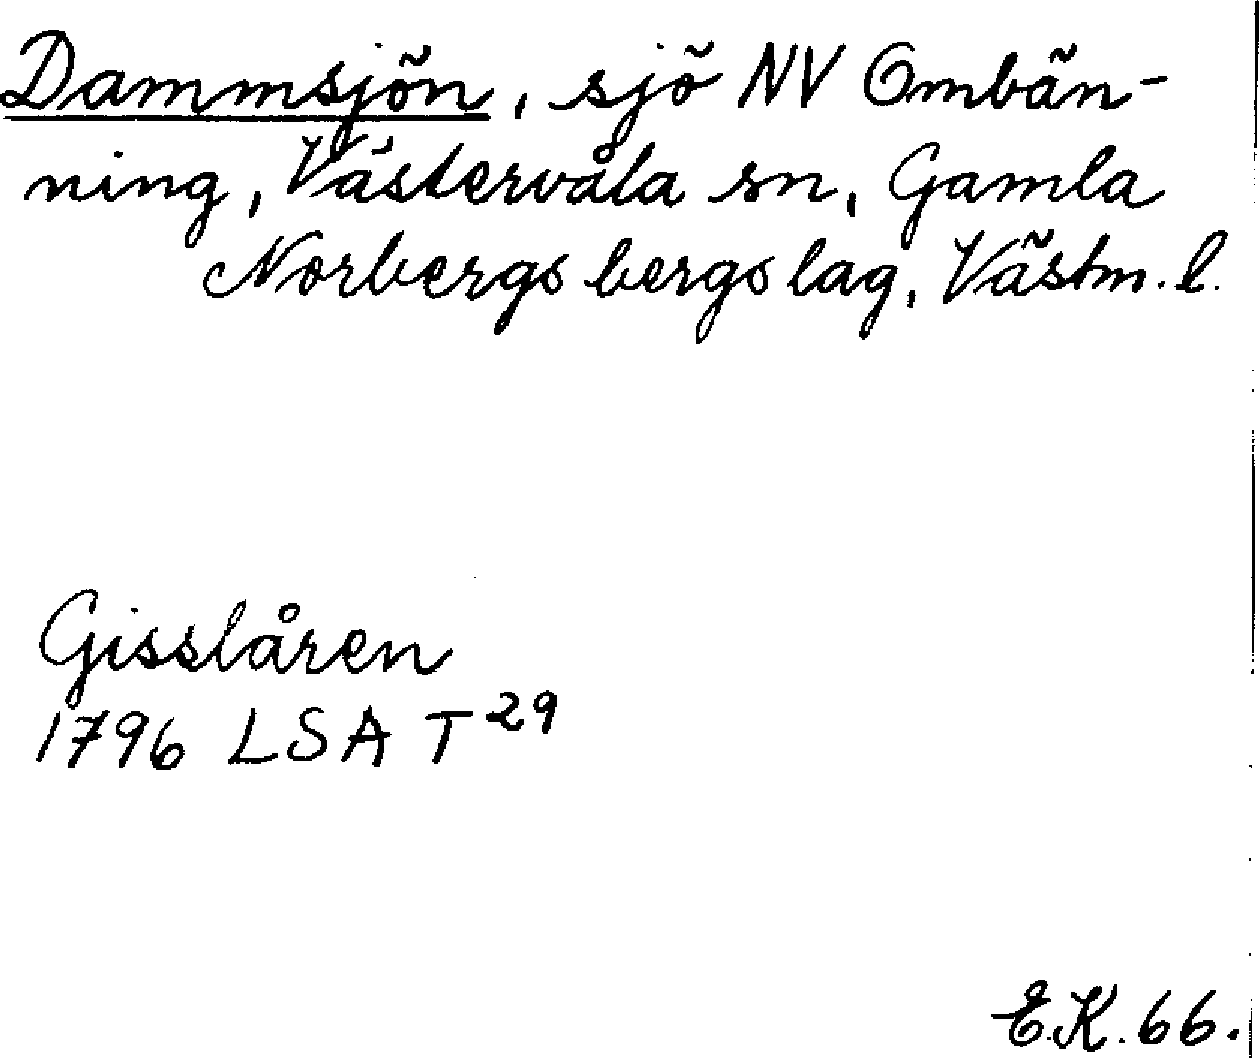 Dammsjön, sjö NV Ombän-
ning, Västervåla sn, Gamla
Norbergs bergslag, Västm. l.
Gisslåren
1796 LSA T 29
E.K. 66.